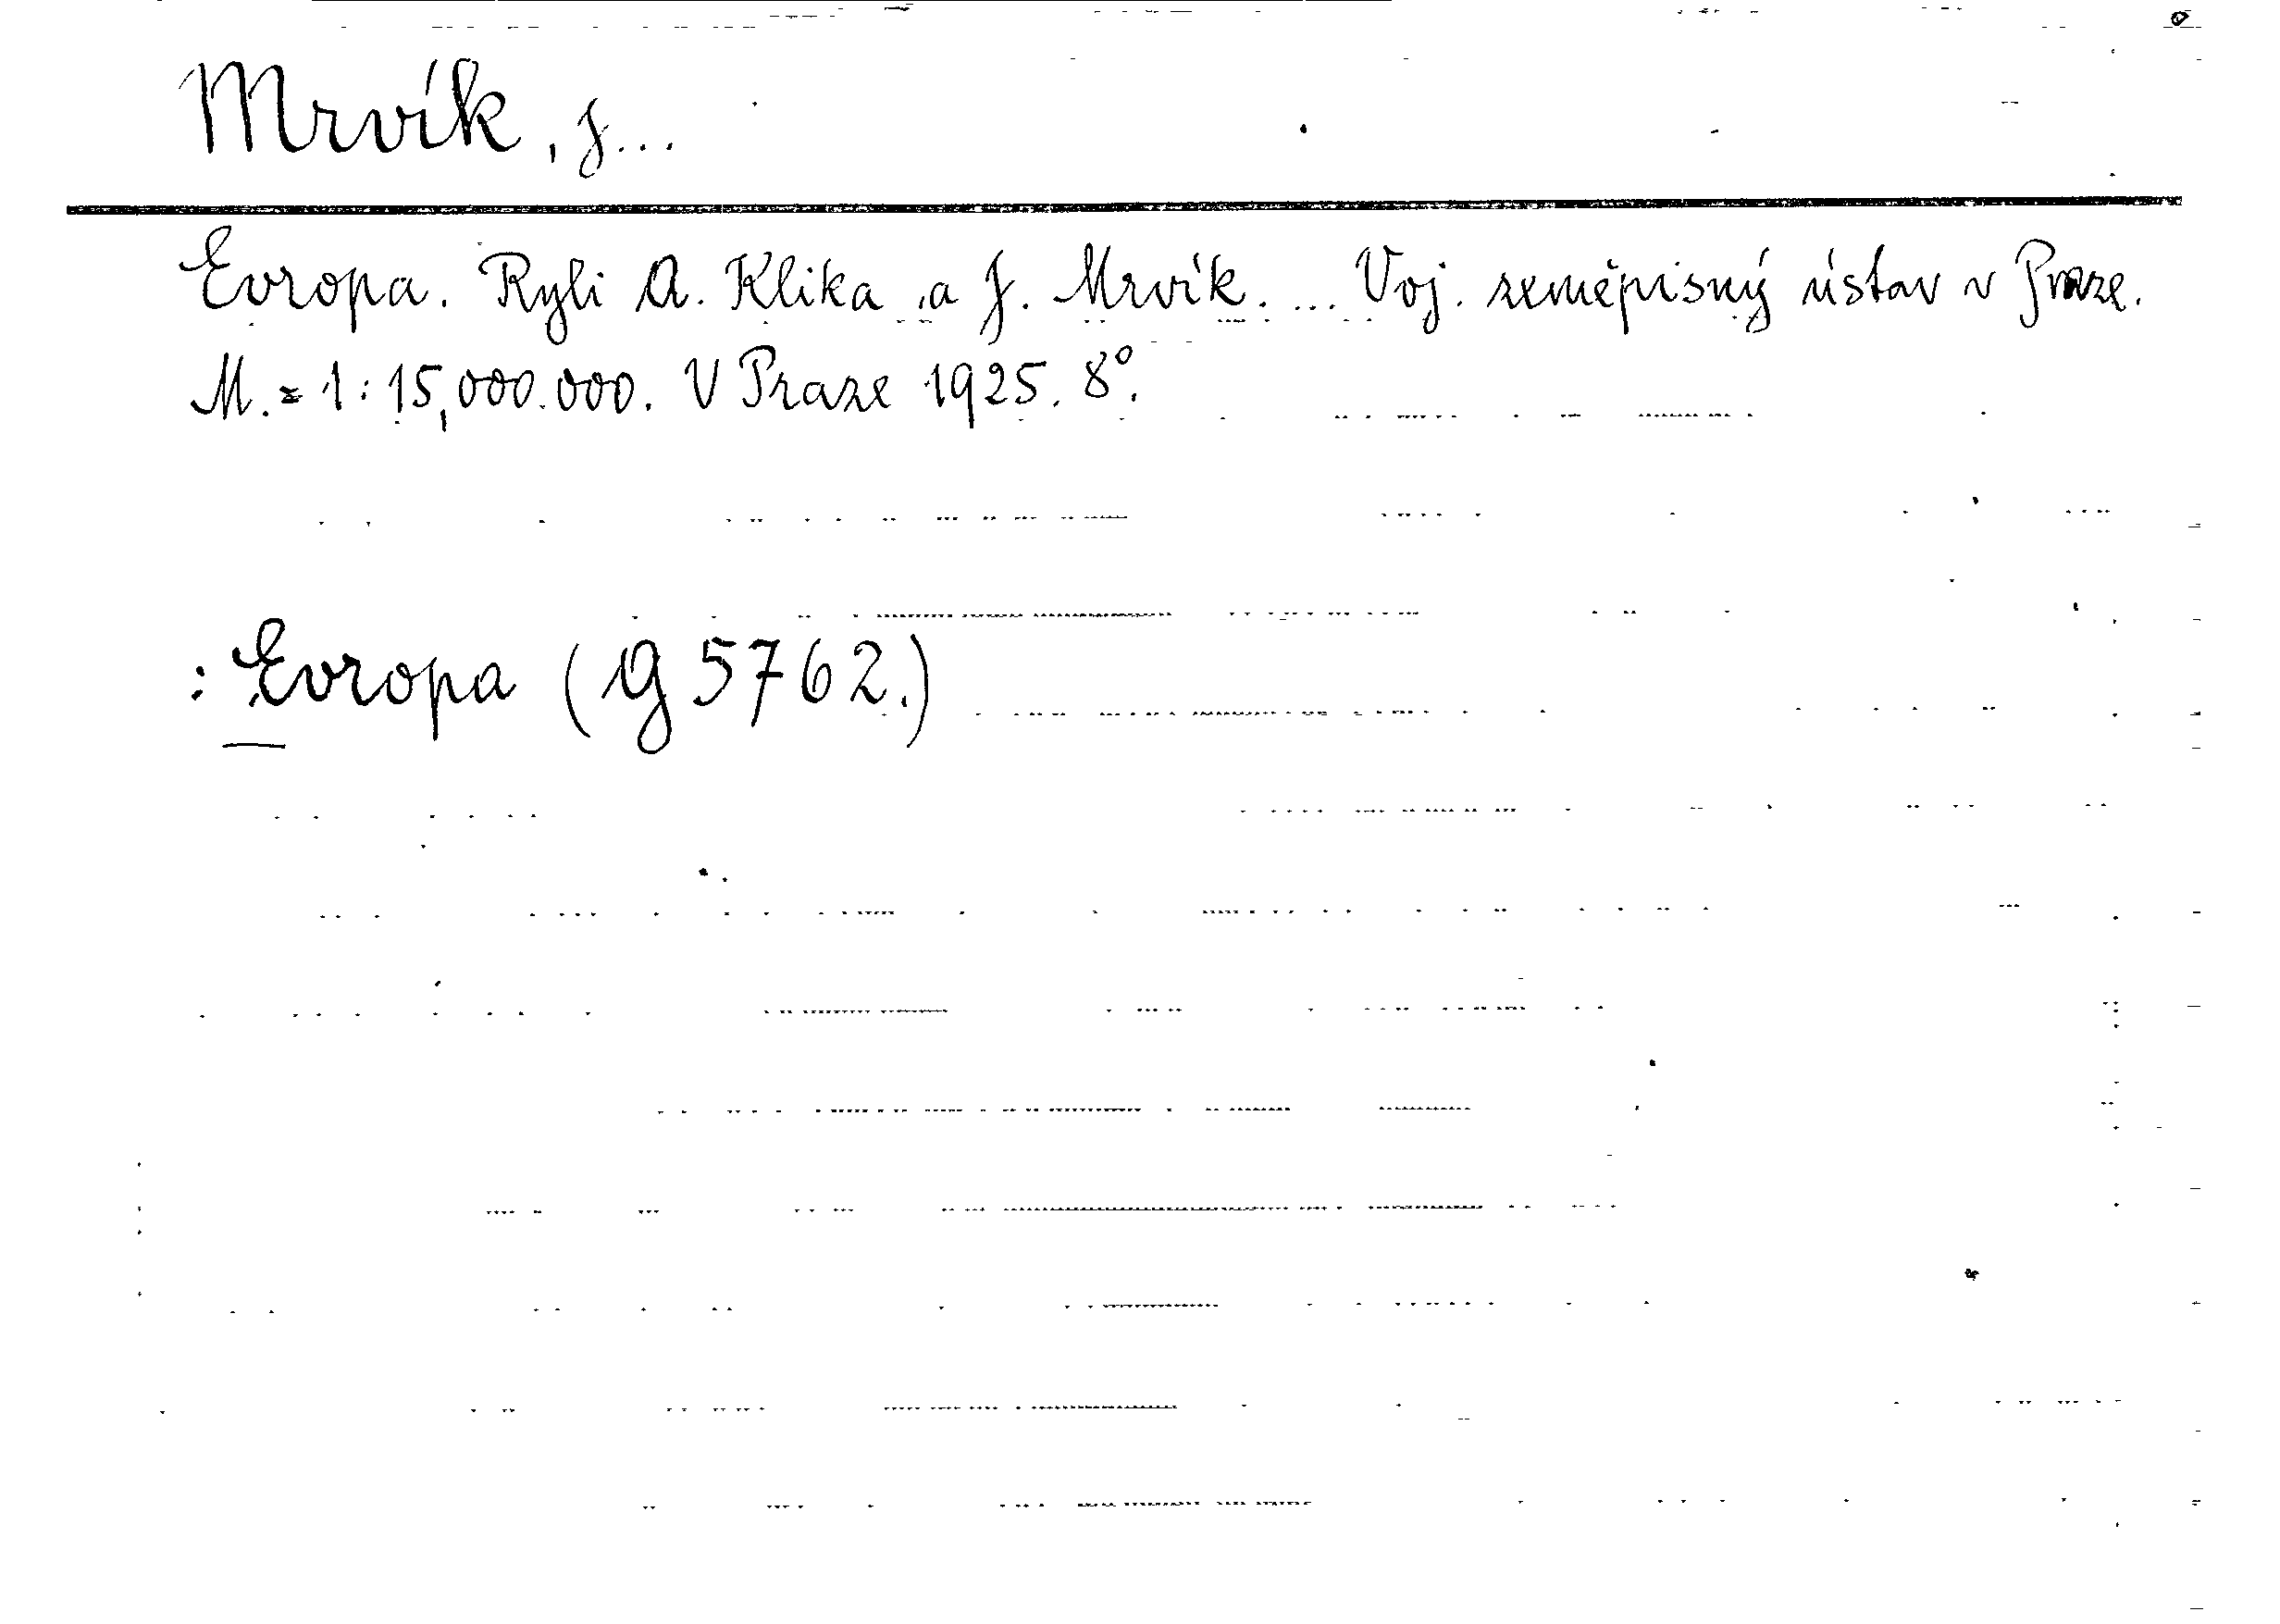 Mrvík, J...
Evropa. Ryli A. Klika a J. Mrvík. ... Voj. zeměpisný ústav v Praze.
M. = 1:15,000.000. V Praze 1925. 8°.
: Evropa (g 5762.)